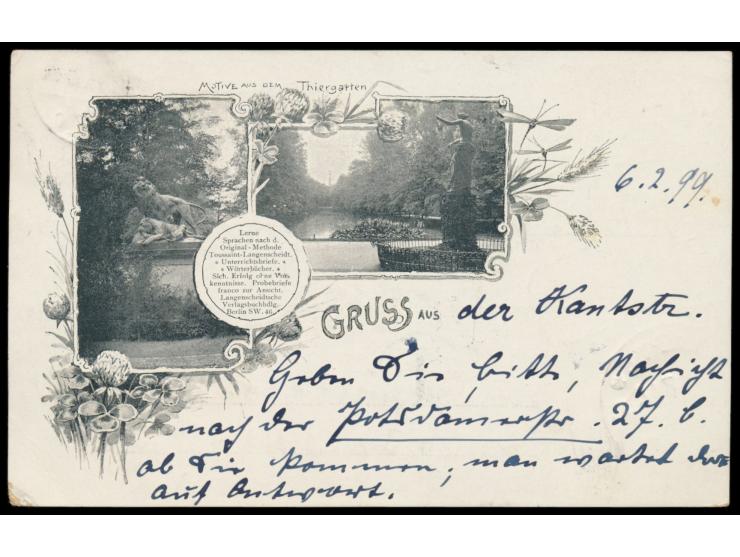 MOTIVE AUS DEM Thiergarten
Lerne
Sprachen nach d.
Original-Methode
Toussaint-Langenscheidt.
* Unterrichtsbriefe. *
* Wörterbücher. *
Sich. Erfolg ohne Vorkenntnisse. Probebriefe
franco zur Ansicht.
Langenscheidtsche
Verlagsbuchhdlg.
Berlin SW. 46.
6.2.99.
GRUSS AUS der Kantstr.
Geben Sie, bitte, Nachricht
nach der Potsdamerstr. 27. b.
ob Sie kommen, man wartet
auf Antwort.